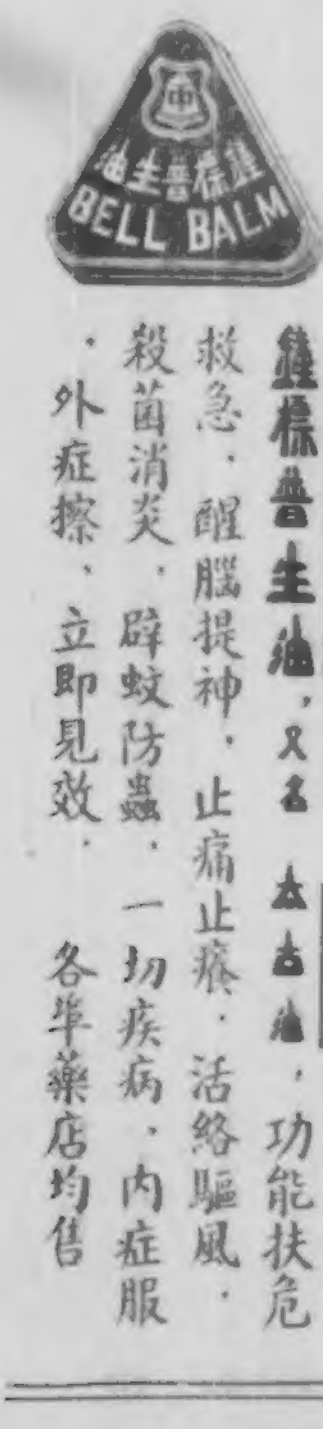 中
油生普標鐘
BELL BALM
鐘標普生油，又名 太古油，功能扶危
救急．醒腦提神．止痛止癢．活絡驅風．
殺菌消炎．辟蚊防蟲．一切疾病．內症服
．外症擦．立即見效． 各埠藥店均售